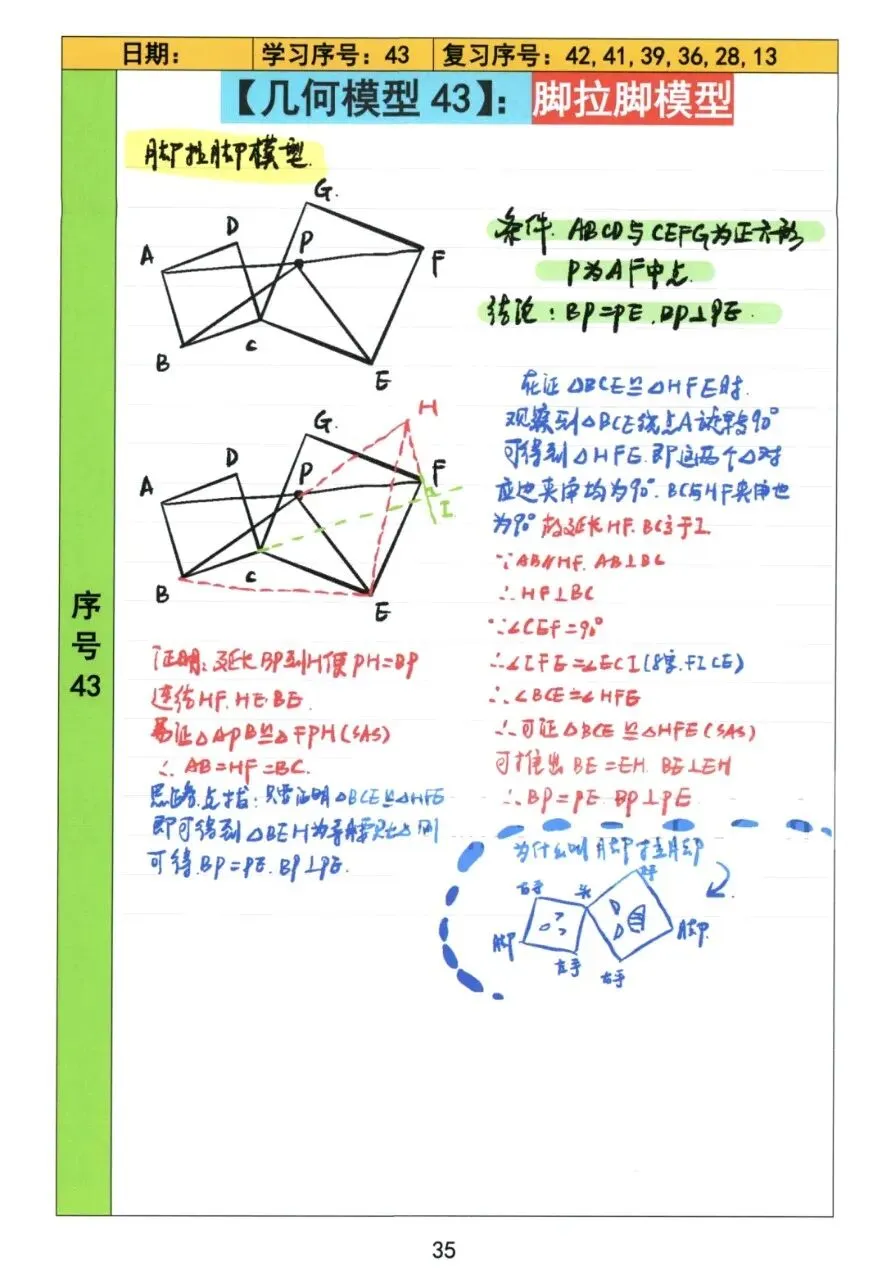 日期: 学习序号: 43 复习序号: 42, 41, 39, 36, 28, 13
【几何模型 43】: 脚拉脚模型
序号43
脚拉脚模型.
G.
D
P
A
F
B
C
E
条件. ABCD与CEFG为正方形
P为AF中点.
结论: BP=PE. BP⊥PE.
H
G
D
P
F
A
I
B
C
E
证明: 延长BP到H使PH=BP
连结HF. HE. BE.
易证△APB≌△FPH(SAS)
∴ AB=HF=BC.
思路点拔: 只需证明△BCE≌△HFE
即可得到△BEH为等腰Rt△ 则
可得.BP=PE. BP⊥PE.
在证△BCE≌△HFE时.
观察到△BCE绕点A旋转90°
可得到△HFE. 即这两个△对
应边夹角均为90°. BC与HF夹角也
为90° 故延长HF. BC交于I.
∵AB∥HF. AB⊥BC
∴HF⊥BC
∵∠CEF=90°
∴∠IFE=∠ECI(8字.FICE)
∴∠BCE=∠HFE
∴可证△BCE≌△HFE(SAS)
可推出 BE=EH. BE⊥EH
∴BP=PE. BP⊥PE
为什么叫脚拉脚
右手
头
左手
脚
脚
左手
右手
35